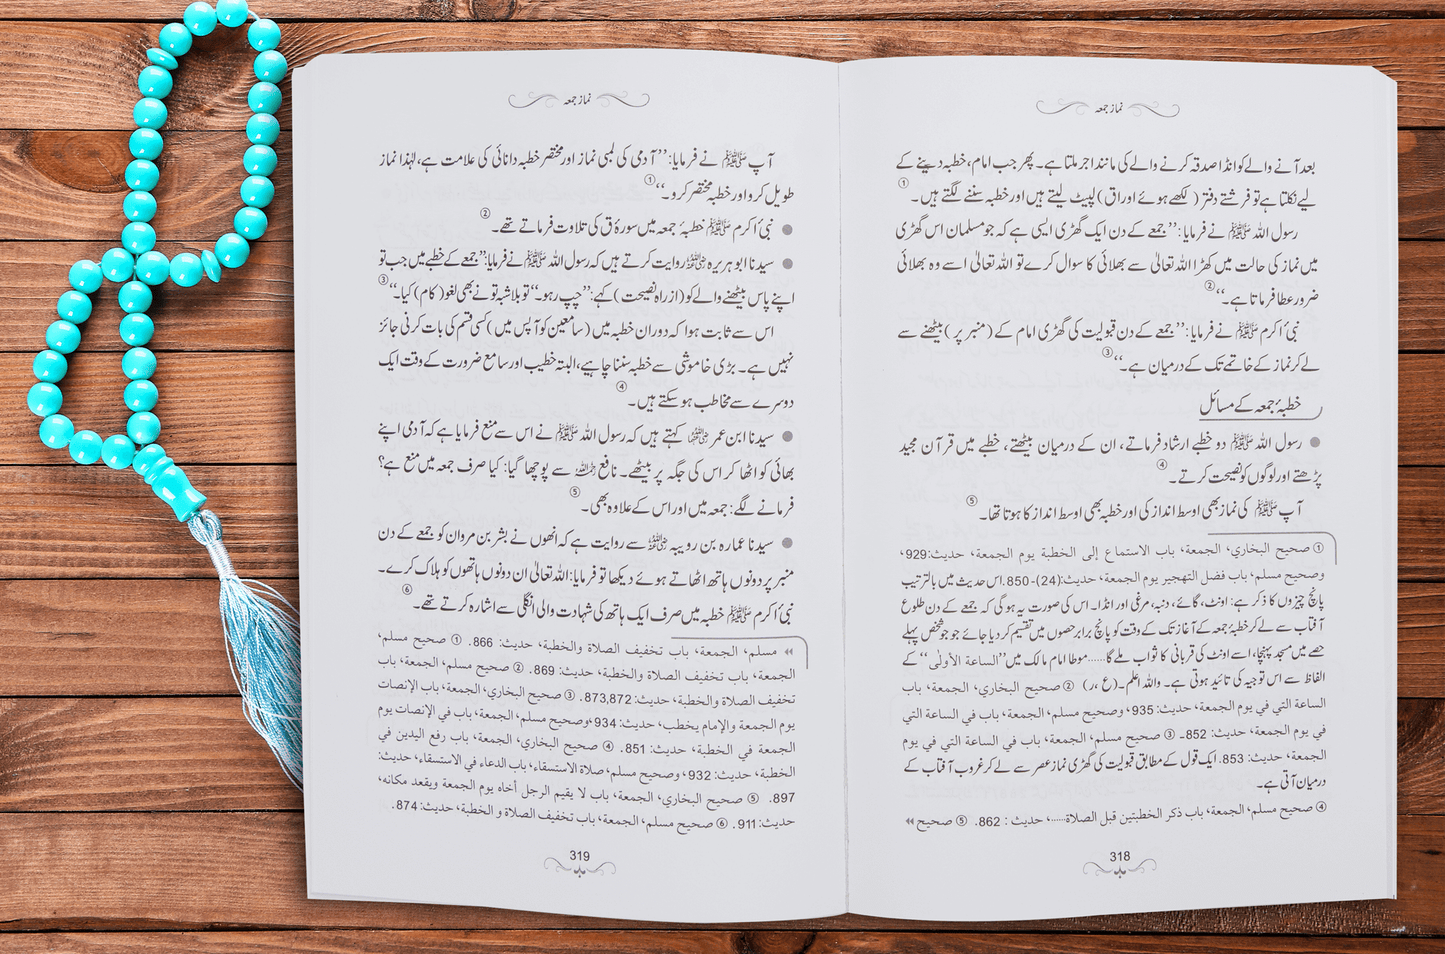 نماز جمعہ
بعد آنے والے کو انڈا صدقہ کرنے والے کی مانند اجر ملتا ہے۔ پھر جب امام، خطبہ دینے کے
لیے نکلتا ہے تو فرشتے دفتر (لکھے ہوئے اوراق) لپیٹ لیتے ہیں اور خطبہ سننے لگتے ہیں۔ ①
رسول اللہ ﷺ نے فرمایا: ’’جمعے کے دن ایک گھڑی ایسی ہے کہ جو مسلمان اس گھڑی
میں نماز کی حالت میں کھڑا اللہ تعالیٰ سے بھلائی کا سوال کرے تو اللہ تعالیٰ اسے وہ بھلائی
ضرور عطا فرماتا ہے۔‘‘ ②
نبیٔ اکرم ﷺ نے فرمایا: ’’جمعے کے دن قبولیت کی گھڑی امام کے (منبر پر) بیٹھنے سے
لے کر نماز کے خاتمے تک کے درمیان ہے۔‘‘ ③
خطبۂ جمعہ کے مسائل
● رسول اللہ ﷺ دو خطبے ارشاد فرماتے، ان کے درمیان بیٹھتے، خطبے میں قرآن مجید
پڑھتے اور لوگوں کو نصیحت کرتے۔ ④
آپ ﷺ کی نماز بھی اوسط انداز کی اور خطبہ بھی اوسط انداز کا ہوتا تھا۔ ⑤
① صحيح البخاري، الجمعة، باب الاستماع إلى الخطبة يوم الجمعة، حديث:929،
وصحيح مسلم، باب فضل التهجير يوم الجمعة، حديث:(24)-850. اس حدیث میں بالترتیب
پانچ چیزوں کا ذکر ہے: اونٹ، گائے، دنبہ، مرغی اور انڈا۔ اس کی صورت یہ ہوگی کہ جمعے کے دن طلوع
آفتاب سے لے کر خطبۂ جمعہ کے آغاز تک کے وقت کو پانچ برابر حصوں میں تقسیم کر دیا جائے جو جو شخص پہلے
حصے میں مسجد پہنچا، اسے اونٹ کی قربانی کا ثواب ملے گا ...... موطا امام مالک میں ’’الساعة الأولى‘‘ کے
الفاظ سے اس توجیہ کی تائید ہوتی ہے۔ واللہ اعلم۔ (ع،ر) ② صحيح البخاري، الجمعة، باب
الساعة التي في يوم الجمعة، حديث: 935، وصحيح مسلم، الجمعة، باب في الساعة التي
في يوم الجمعة، حديث: 852۔ ③ صحيح مسلم، الجمعة، باب في الساعة التي في يوم
الجمعة، حديث: 853. ایک قول کے مطابق قبولیت کی گھڑی نماز عصر سے لے کر غروب آفتاب کے
درمیان آتی ہے۔
④ صحيح مسلم، الجمعة، باب ذكر الخطبتين قبل الصلاة......، حديث: 862. ⑤ صحيح ◄◄
318
نماز جمعہ
آپ ﷺ نے فرمایا: ’’آدمی کی لمبی نماز اور مختصر خطبہ دانائی کی علامت ہے، لہٰذا نماز
طویل کرو اور خطبہ مختصر کرو۔‘‘ ①
● نبیٔ اکرم ﷺ خطبۂ جمعہ میں سورۂ ق کی تلاوت فرماتے تھے۔ ②
● سیدنا ابو ہریرہ رضی اللہ عنہ روایت کرتے ہیں کہ رسول اللہ ﷺ نے فرمایا: ’’جمعے کے خطبے میں جب تو
اپنے پاس بیٹھنے والے کو (ازراہ نصیحت) کہے: ’’چپ رہو۔‘‘ تو بلاشبہ تو نے بھی لغو (کام) کیا۔‘‘ ③
اس سے ثابت ہوا کہ دوران خطبہ میں (سامعین کو آپس میں) کسی قسم کی بات کرنی جائز
نہیں ہے۔ بڑی خاموشی سے خطبہ سننا چاہیے، البتہ خطیب اور سامع ضرورت کے وقت ایک
دوسرے سے مخاطب ہو سکتے ہیں۔ ④
● سیدنا ابن عمر رضی اللہ عنہما کہتے ہیں کہ رسول اللہ ﷺ نے اس سے منع فرمایا ہے کہ آدمی اپنے
بھائی کو اٹھا کر اس کی جگہ پر بیٹھے۔ نافع رحمہ اللہ سے پوچھا گیا: کیا صرف جمعہ میں منع ہے؟
فرمانے لگے: جمعہ میں اور اس کے علاوہ بھی۔ ⑤
● سیدنا عمارہ بن رویبہ رضی اللہ عنہ سے روایت ہے کہ انھوں نے بشر بن مروان کو جمعے کے دن
منبر پر دونوں ہاتھ اٹھاتے ہوئے دیکھا تو فرمایا: اللہ تعالیٰ ان دونوں ہاتھوں کو ہلاک کرے۔
نبیٔ اکرم ﷺ خطبہ میں صرف ایک ہاتھ کی شہادت والی انگلی سے اشارہ کرتے تھے۔ ⑥
◄◄ مسلم، الجمعة، باب تخفيف الصلاة والخطبة، حديث: 866. ① صحيح مسلم،
الجمعة، باب تخفيف الصلاة والخطبة، حديث: 869. ② صحيح مسلم، الجمعة، باب
تخفيف الصلاة والخطبة، حديث: 873,872. ③ صحيح البخاري، الجمعة، باب الإنصات
يوم الجمعة والإمام يخطب، حديث: 934، وصحيح مسلم، الجمعة، باب في الإنصات يوم
الجمعة في الخطبة، حديث: 851. ④ صحيح البخاري، الجمعة، باب رفع اليدين في
الخطبة، حديث: 932، وصحيح مسلم، صلاة الاستسقاء، باب الدعاء في الاستسقاء، حديث:
897. ⑤ صحيح البخاري، الجمعة، باب لا يقيم الرجل أخاه يوم الجمعة ويقعد مكانه،
حديث: 911. ⑥ صحيح مسلم، الجمعة، باب تخفيف الصلاة و الخطبة، حديث: 874.
319